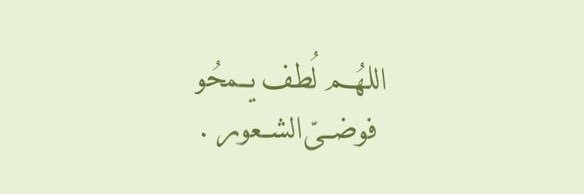 اللهُم لُطف يمحُو
فوضىّ الشعور .